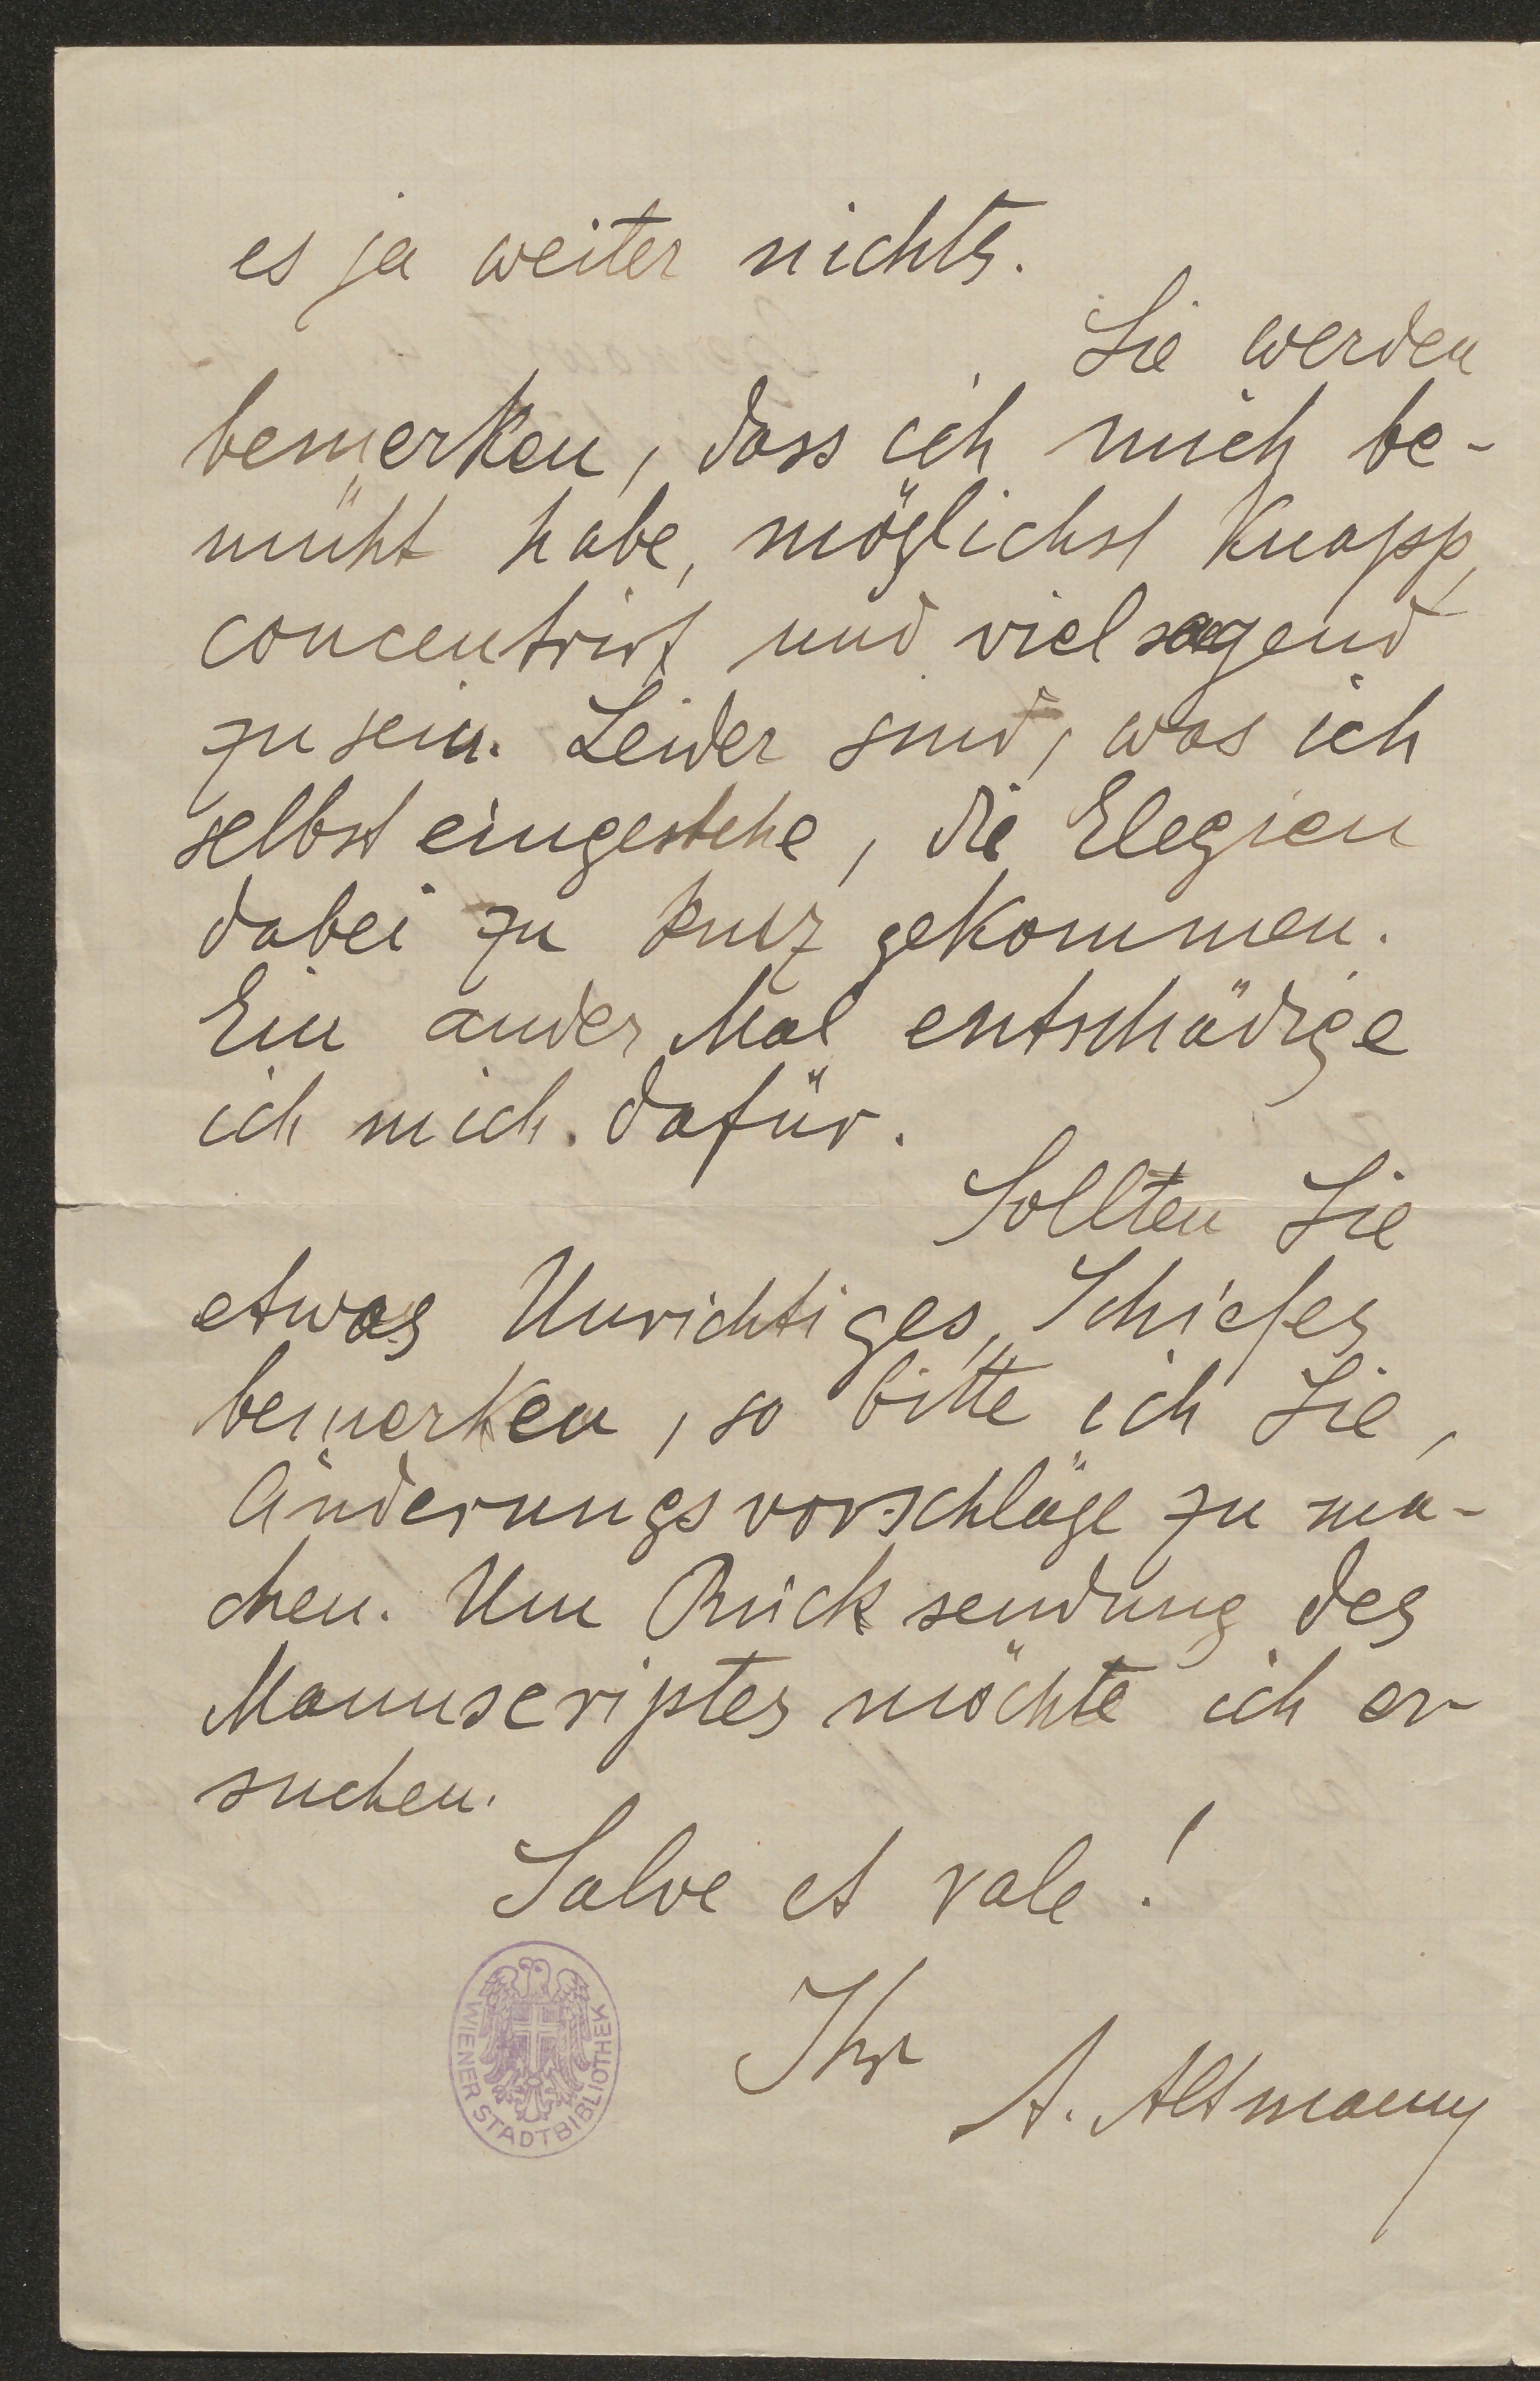 es ja weiter nichts.
Sie werden
bemerken, dass ich mich be-
müht habe, möglichst knapp,
concentrirt und vielsagend
zu sein. Leider sind, was ich
selbst eingestehe, die Elegien
dabei zu kurz gekommen.
Ein ander Mal entschädige
ich mich dafür.
Sollten Sie
etwas Unrichtiges, Schiefes
bemerken, so bitte ich Sie,
Änderungsvorschläge zu ma-
chen. Um Rücksendung des
Manuscriptes möchte ich er-
suchen.
Salve et vale!
Ihr
A. Altmann
WIENER STADTBIBLIOTHEK